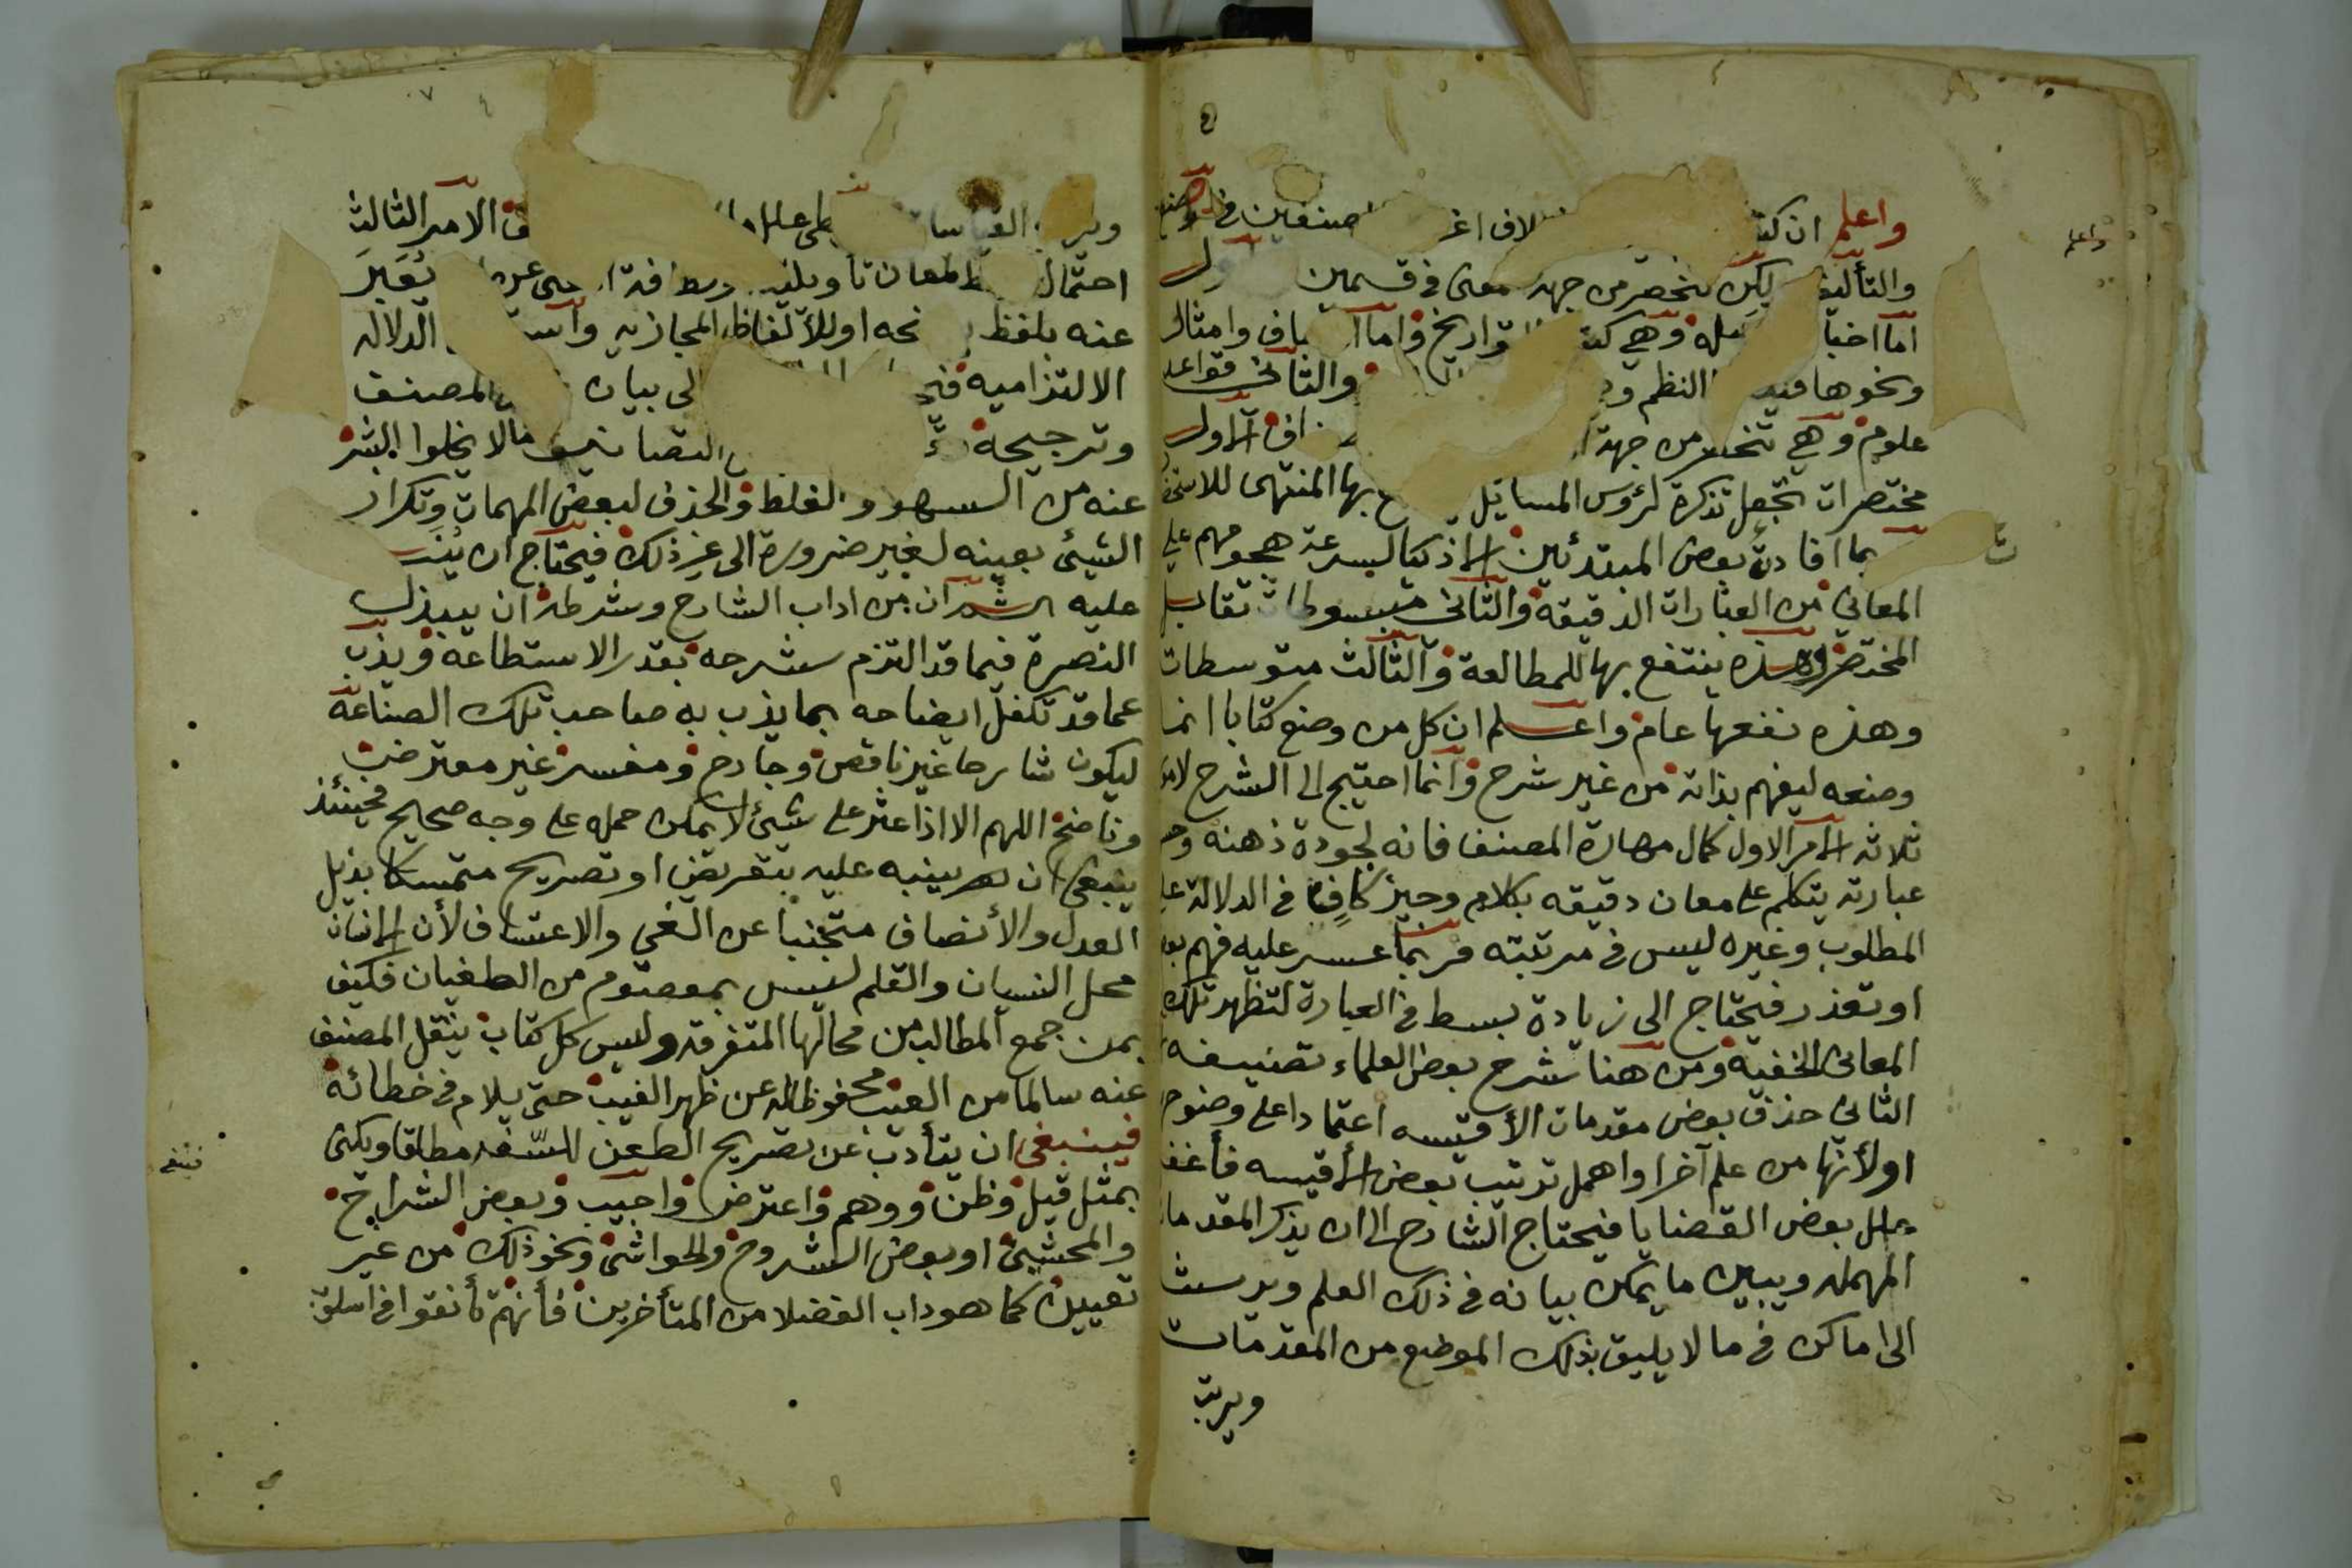 واعلم ان كتب لاف اغر المصنفين في الوضع
والتأليف لكن تنحصر من جهة معنى في قسمين الاول
اما اخبار مرسله وهي كتب التواريخ واما اوصاف وامثال
ونحوها قيدها النظم والثاني قواعد
علوم وهي تنحصر من جهة اصناف الاول
مختصرات تجعل تذكرة لرؤس المسايل بها المنتهى للاستحضار
بما افادت بعض المبتدئين الاذكيا لسرعة هجومهم على
المعاني من العبارات الدقيقة والثاني مبسوطات تقابل
المختصر وهذه ينتفع بها للمطالعة والثالث متوسطات
وهذه نفعها عام واعلم ان كل من وضع كتابا انما
وضعه ليفهم بذاته من غير شرح وانما احتيج الى الشرح لامور
ثلاثه الامر الاول كمال مهارة المصنف فانه لجودة ذهنه وحسن
عبارته يتكلم على معان دقيقه بكلام وجيز كافيا في الدلالة على
المطلوب وغيره ليس في مرتبته فربما عسر عليه فهم بعضها
او تعذر فتحتاج الى زيادة بسط في العبارة لتظهر تلك
المعاني الخفية ومن هنا شرح بعض العلماء تصنيفه
الثاني حذف بعض مقدمات الأقيسه اعتمادا على وضوحها
اولأنها من علم آخر او اهمل ترتيب بعض الأقيسه فأغفل
علل بعض القضايا فيحتاج الشارح الى ان يذكر المقدمات
المهمله ويبين ما يمكن بيانه في ذلك العلم ويرسث
الى اماكن في ما لا يليق بذلك الموضع من المقدمات
ويرتب
واعلم
ت
ويرتب القياسات ويعطى علل ما الامر الثالث
احتمال اللفظ لمعان تأويليه لطافة المعنى عن ان يعبر
عنه بلفظ يوضحه او للألفاظ المجازيه واستعمال الدلاله
الالتزاميه فيحتاج الى بيان غرض المصنف
وترجيحه التصانيف ما لا يخلوا البشر
عنه من السهو والغلط والحذف لبعض المهمات وتكرار
الشيئ بعينه لغير ضرورة الى غير ذلك فيحتاج ان ينبه
عليه ثم ان من اداب الشارح وشرطه ان يبذل
النصرة فيما قد التزم شرحه بقدر الاستطاعه ويذب
عما قد تكفل ايضاحه بما يذب به صاحب تلك الصناعه
ليكون شارحا غير ناقص وجارح ومفسر غير معترض
وناضح اللهم الا اذا عثر على شيئ لا يمكن حمله على وجه صحيح فحينئذ
ينبغي ان ينبه عليه بتعريض او تصريح متمسكا بذيل
العدل والأنصاف متجنبا عن الغي والاعتساف لأن الانسان
محل النسيان والقلم ليس بمعصوم من الطغيان فكيف
بمن جمع المطالب من محالها المتفرقه وليس كل كتاب ينقل المصنف
عنه سالما من العيب محفوظا له عن ظهر الغيب حتى يلام في خطائه
فينبغي ان يتأدب عن تصريح الطعن للسلف مطلقا ويكنى
بمثل قيل وظن ووهم واعترض واجيب وبعض الشراح
والمحشين او بعض الشروح والحواشى ونحو ذلك من غير
تعيين كما هو داب الفضلا من المتأخرين فأنهم تأنقوا في اسلوب
فينبغى